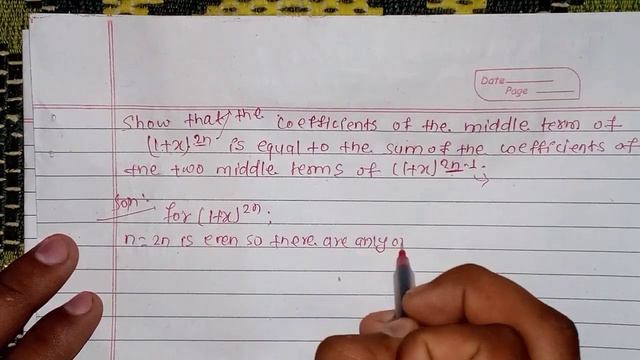 Date
Page
Show that the coefficients of the middle term of
(1+x)^2n is equal to the sum of the coefficients of
the two middle terms of (1+x)^2n-1.
Soln:
for (1+x)^2n;
n=2n is even so there are only o